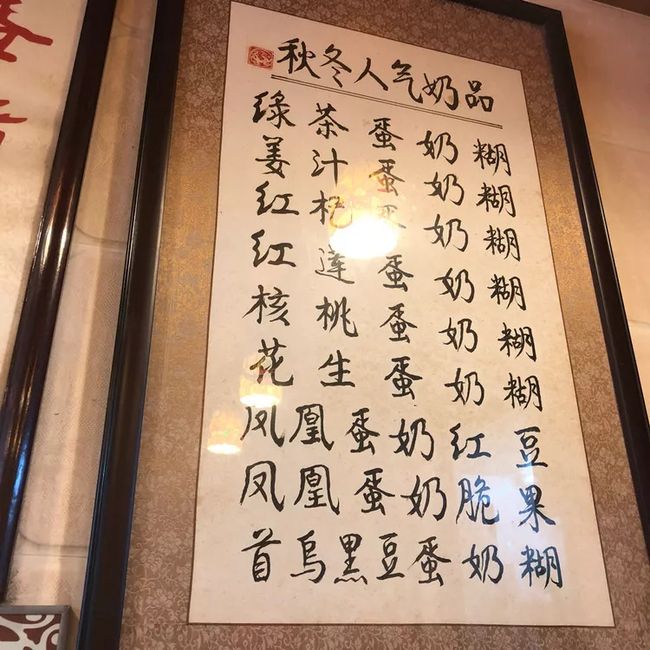 秋冬人气奶品
绿茶蛋奶糊
姜汁蛋奶糊
红杞蛋奶糊
红蓮蛋奶糊
核桃蛋奶糊
花生蛋奶糊
凤凰蛋奶红豆
凤凰蛋奶脆果
首烏黑豆蛋奶糊